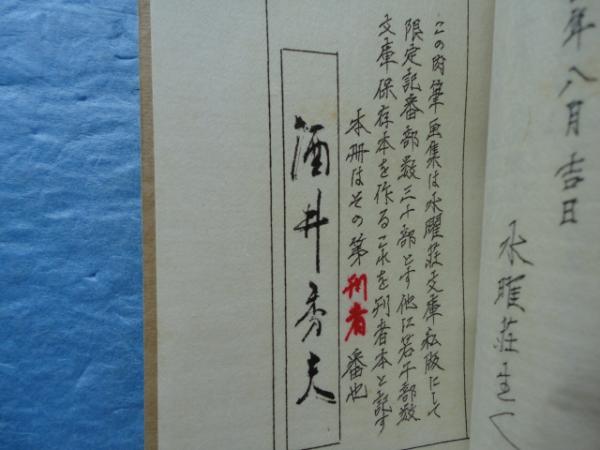 年八月吉日
水曜荘主人
この肉筆画集は水曜荘文庫私版にして
限定記番部数三十部とす他に若干部数
文庫保存本を作るこれを刊者本と記す
本册はその第刊者番也
酒井秀夫